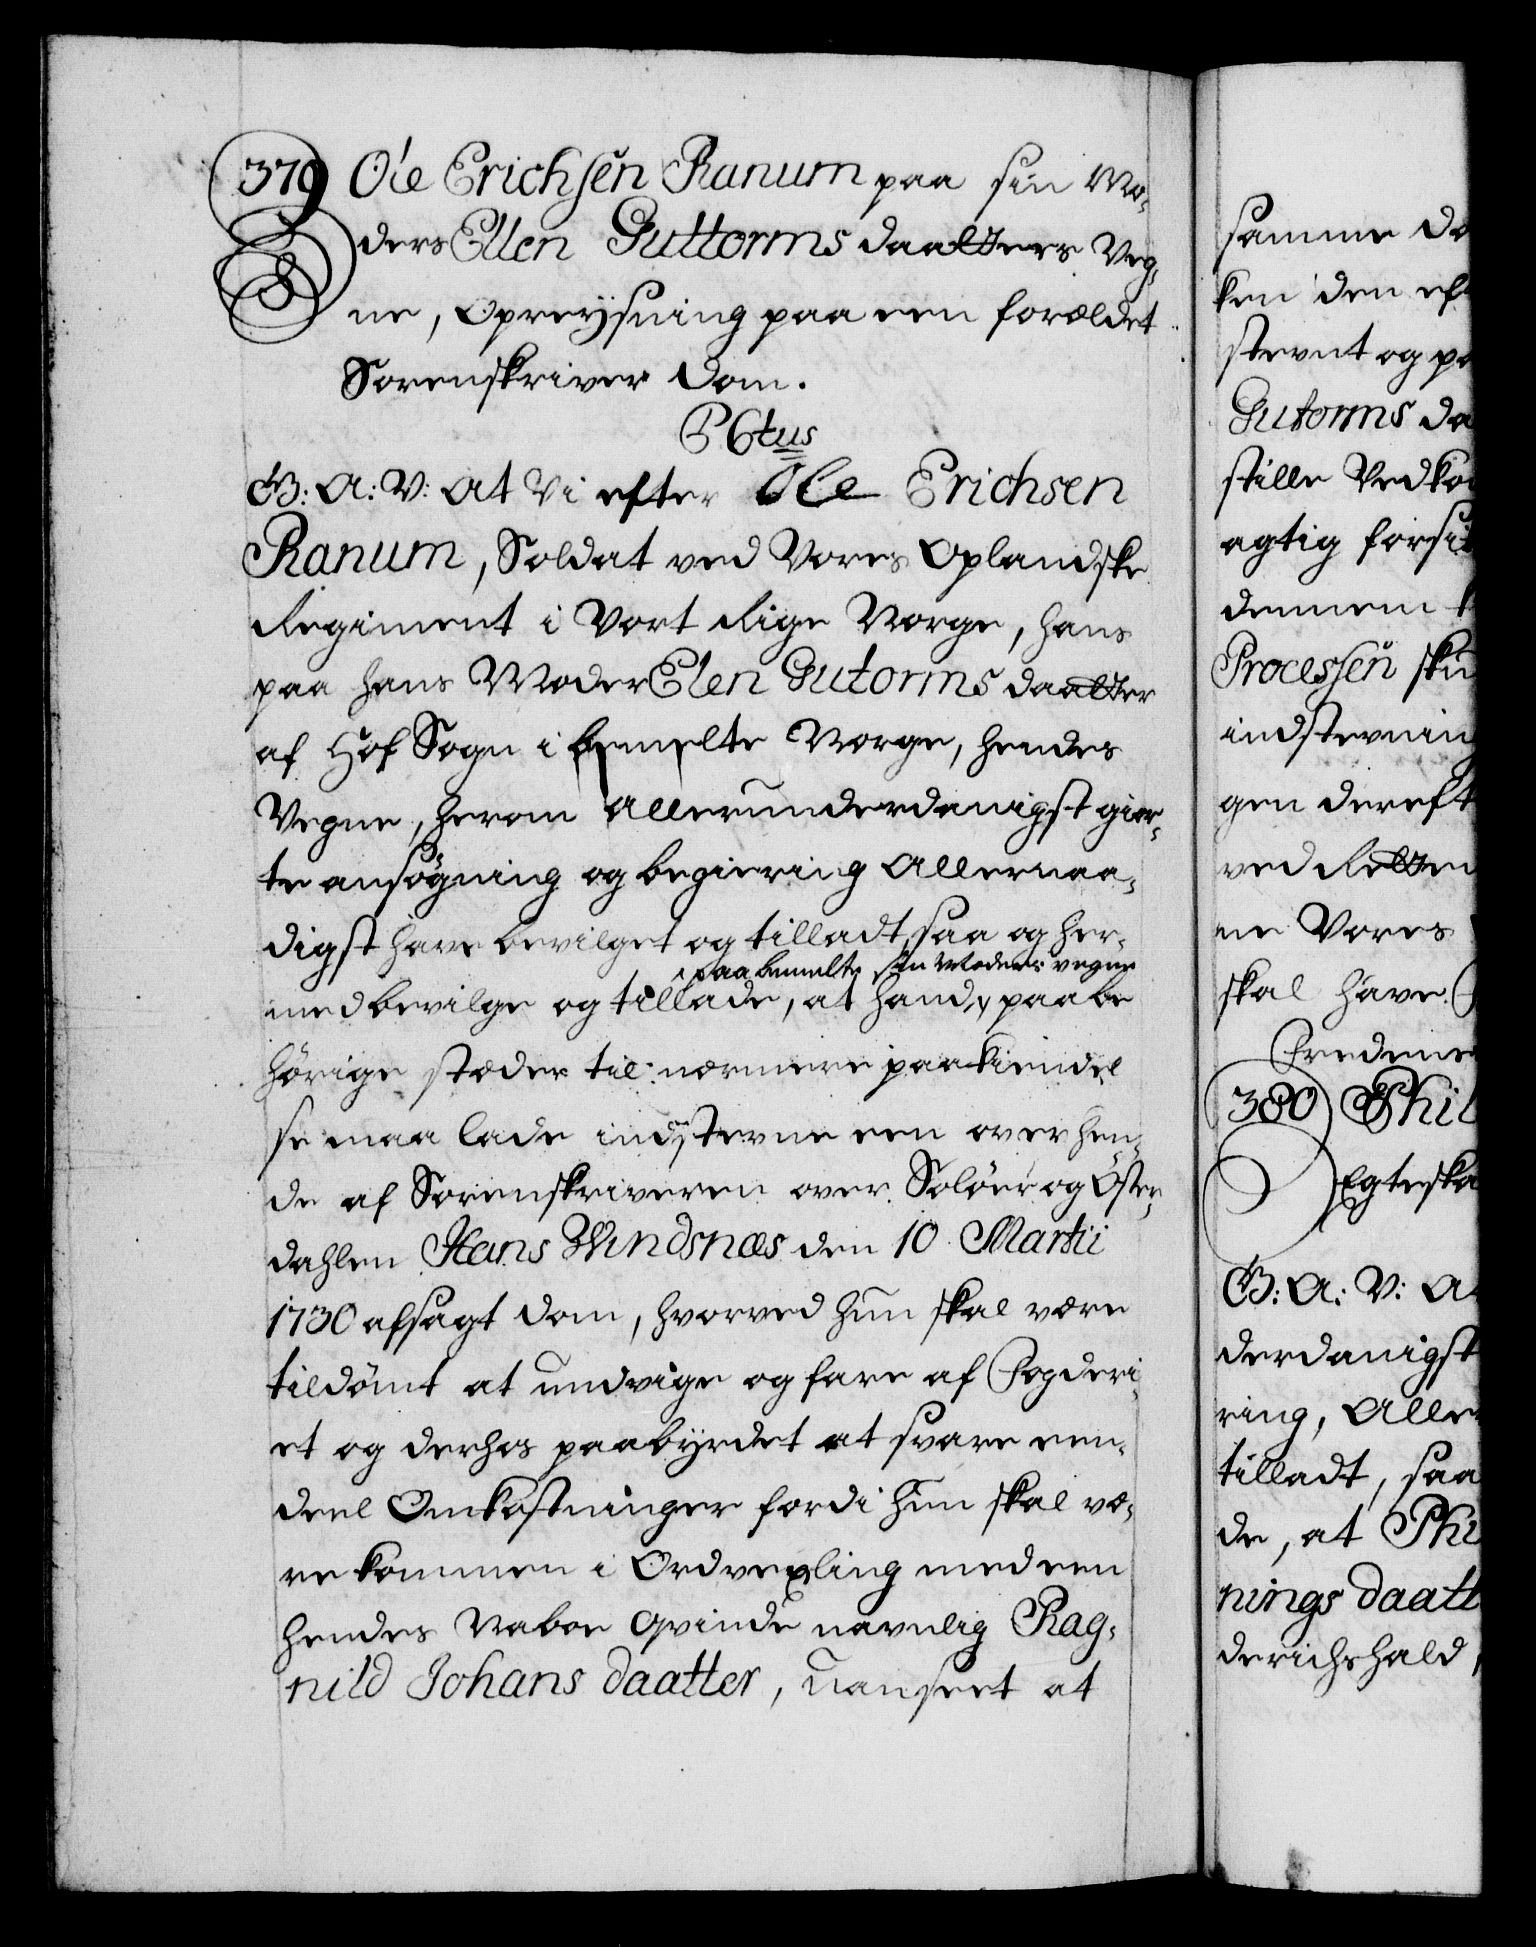 379 Ole Erichsen Ranum paa sin Mo-
ders Ellen Guttorms daatters Veg-
ne, Opreysning paa een forældet
Sorenskriver Dom.
G: A: V: At Vi efter Ole Erichsen
Ranum, Soldat ved Vores Oplandske
Regiment i Vort Rige Norge, hans
paa hans Moder Elen Gutorms daatter
af Hof Sogn i bemelte Norge, hendes
Vegne, herom allerunderdanigst gior-
te ansøgning og begiering Allernaa-
digst have bevilget og tilladt, saa og her-
paa bemelte sin Moders vegne
med bevilge og tillade, at hand, paa be
hörige stæder til nærmere paakiendel
se maa lade indstevne een over hen-
de af Sorenskriveren over Soløer og Öster-
dahlen Hans Windsnæs den 10 Martii
1730 afsagt Dom, hvorved hun skal være
tildömt at undvige og fare af Fogderi-
et og derhos paabyrdet at svare een-
deel Omkostninger fordi hun skal væ-
re kommen i Ordvexling med een
hendes Naboe Qvinde navnlig Rag-
nild Johans daatter, uanseet at
samme Do
ken den eft
stevnt og pa
Gutorms da
stille Vedko
agtig forsi
dennem
Processen sku
indstevning
gen dereft
ved Retten
ne Vores
skal have
Fredens
380 Phil
Egteska
G: A: V: A
derdanigst
ring, Aller
tilladt, saa
de, at Phi
nings daatt
derichshald,